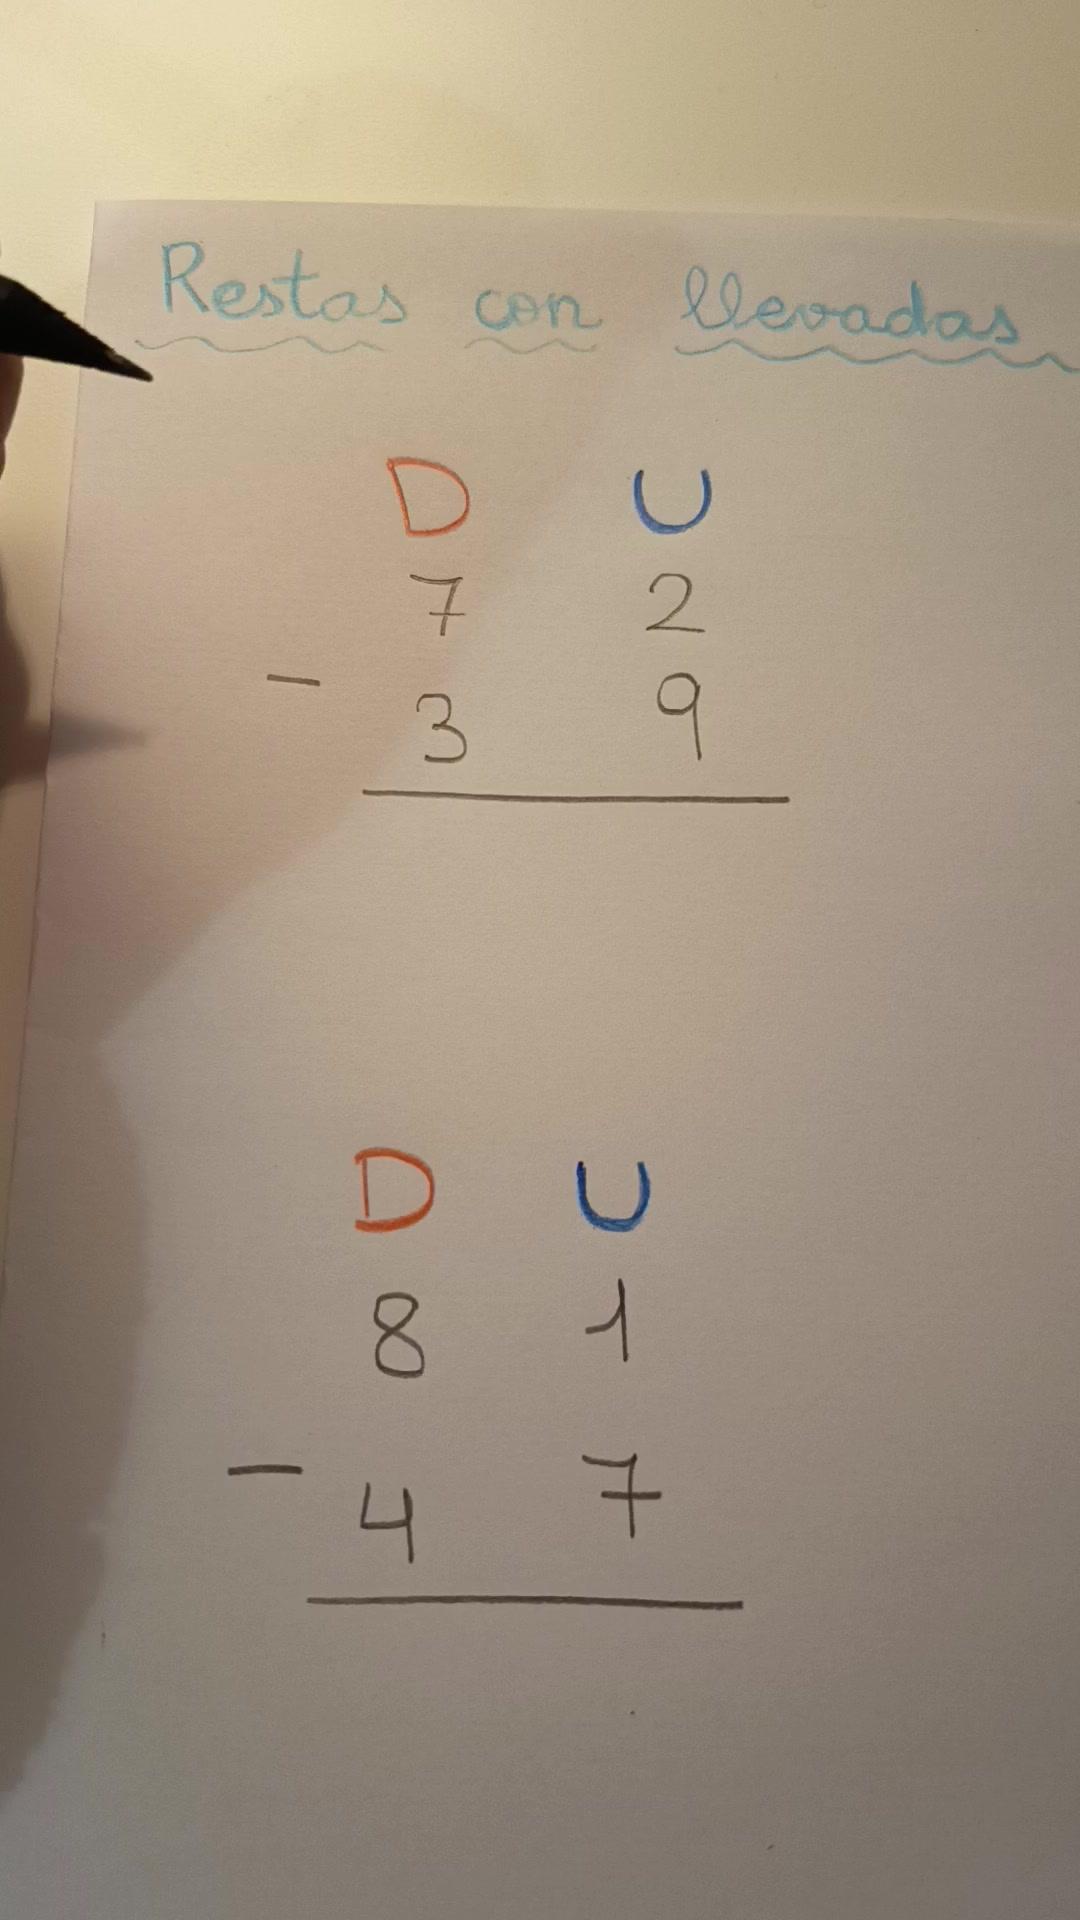 Restas con llevadas
D U
7 2
- 3 9
D U
8 1
- 4 7